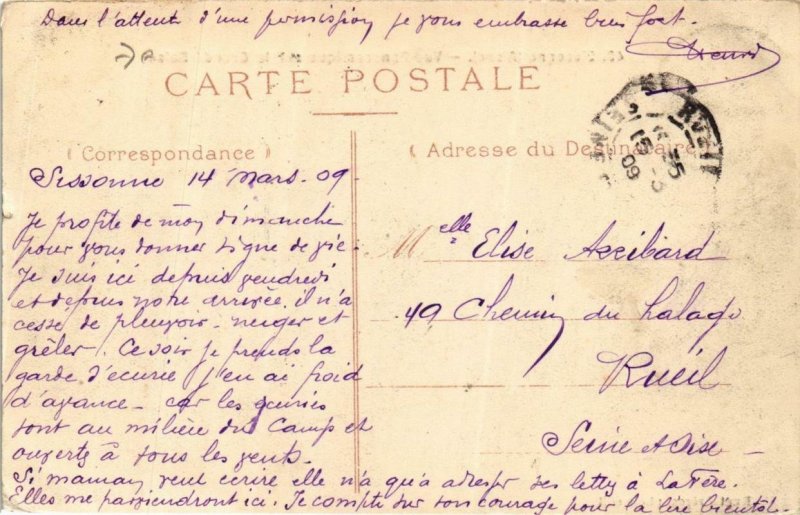 Dans l'attente d'une permission je vous embrasse bien fort.
Henri
CARTE POSTALE
( Correspondance )
( Adresse du Destinataire
RUEIL
15-3
09
Sissonne 14 Mars. 09.
Je profite de mon dimanche
pour vous donner signe de vie.
Je suis ici depuis vendredi
et depuis notre arrivée il n'a
cessé de pleuvoir. neiger et
grêler. Ce soir je prends la
garde d'écurie j'en ai froid
d'avance - car les écuries
sont au milieu du Camp et
ouverts à tous les vents.
Si maman veut écrire elle n'a qu'à adresser ses lettres à La Fère.
Elles me parviendront ici. Je compte sur son courage pour la lire bientôt.
Melle Elise
49, Chemin du
Rueil
Seine et Oise